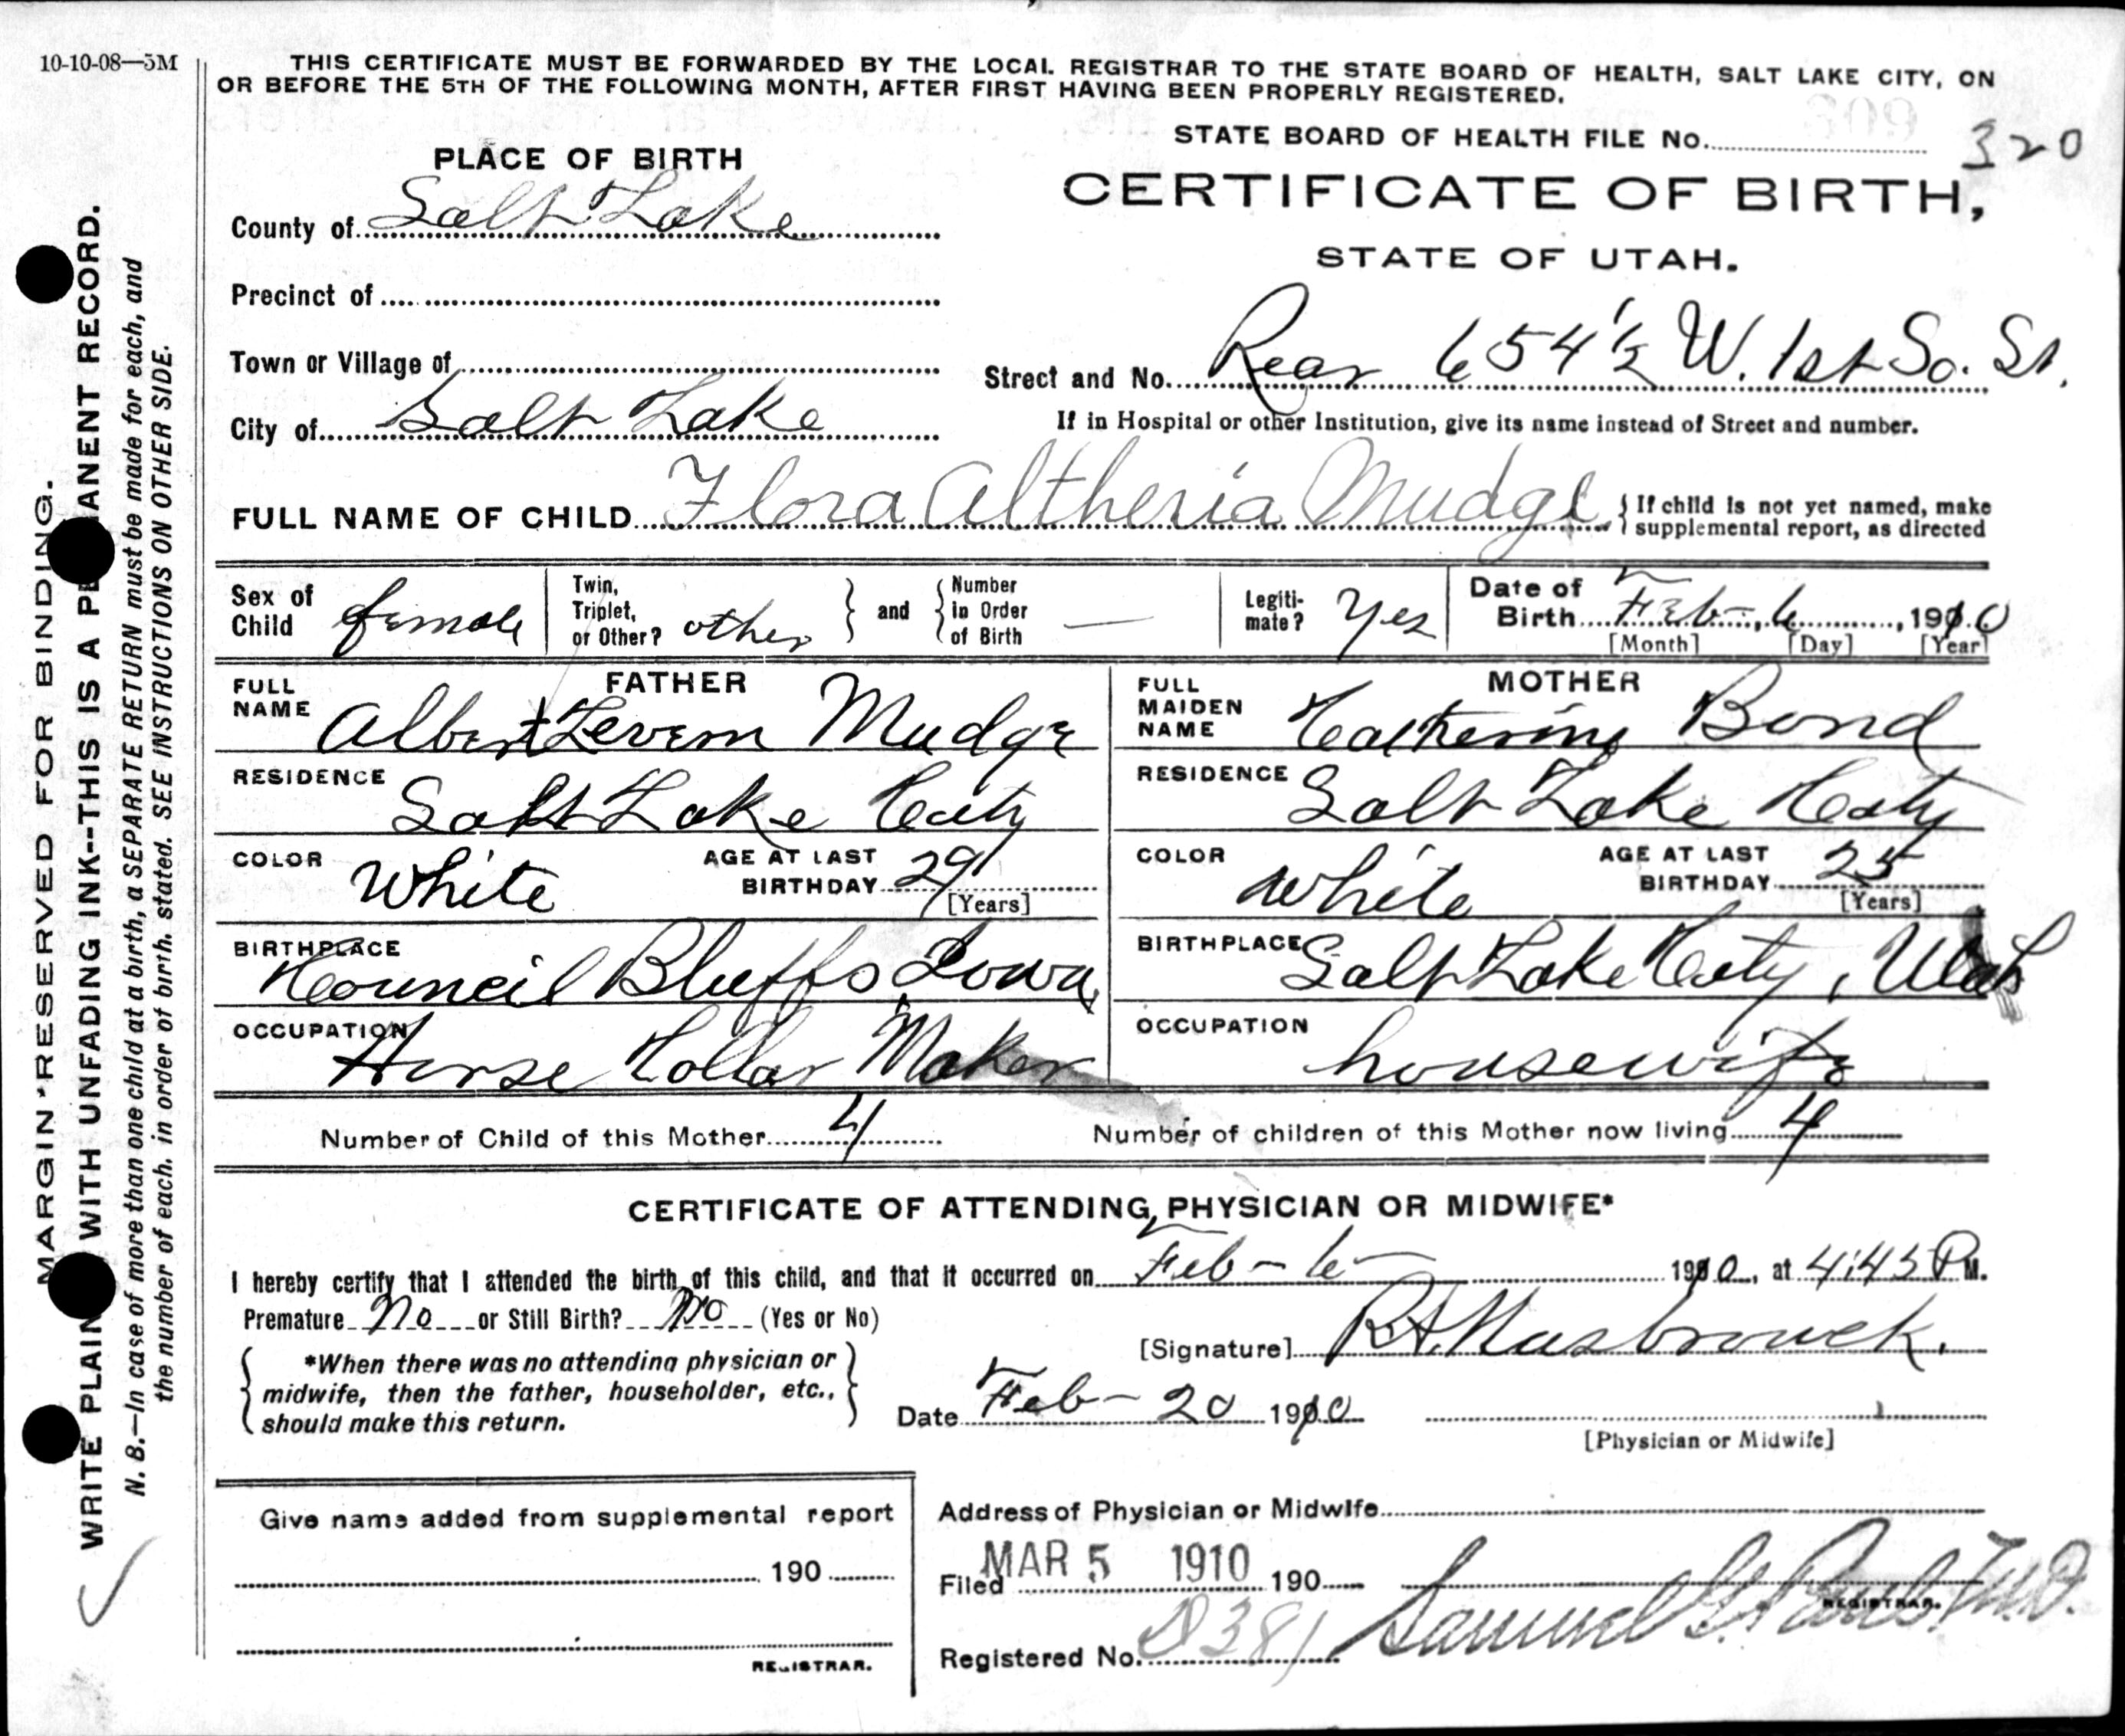 10-10-08—5M
THIS CERTIFICATE MUST BE FORWARDED BY THE LOCAL REGISTRAR TO THE STATE BOARD OF HEALTH, SALT LAKE CITY, ON
OR BEFORE THE 5TH OF THE FOLLOWING MONTH, AFTER FIRST HAVING BEEN PROPERLY REGISTERED.
STATE BOARD OF HEALTH FILE No. 320
PLACE OF BIRTH
CERTIFICATE OF BIRTH,
STATE OF UTAH.
County of Salt Lake
Precinct of
Town or Village of
Street and No. Rear 654 1/2 W. 1st So. St.
City of Salt Lake
If in Hospital or other Institution, give its name instead of Street and number.
FULL NAME OF CHILD Flora Altheria Mudge { If child is not yet named, make
supplemental report, as directed
Sex of Child female
Twin, Triplet, or Other? other } and { Number in Order of Birth —
Legiti-mate? Yes
Date of Birth Feb - 6, 1910
[Month] [Day] [Year]
FATHER
FULL NAME Albert Levern Mudge
MOTHER
FULL MAIDEN NAME Catherine Bond
RESIDENCE Salt Lake City
RESIDENCE Salt Lake City
COLOR White AGE AT LAST BIRTHDAY 29 [Years]
COLOR White AGE AT LAST BIRTHDAY 25 [Years]
BIRTHPLACE Council Bluffs, Iowa
BIRTHPLACE Salt Lake City, Utah
OCCUPATION Horse Collar Maker
OCCUPATION housewife
Number of Child of this Mother 4
Number of children of this Mother now living 4
CERTIFICATE OF ATTENDING PHYSICIAN OR MIDWIFE*
I hereby certify that I attended the birth of this child, and that it occurred on Feb - 6 - 1910, at 4:45 P M.
Premature No or Still Birth? No (Yes or No)
[Signature] R.A. Hasbrouck.
{ *When there was no attending physician or
midwife, then the father, householder, etc.,
should make this return. }
Date Feb - 20 1910
[Physician or Midwife]
Give name added from supplemental report
190
REGISTRAR.
Address of Physician or Midwife
Filed MAR 5 1910 190
Samuel G. Paul M.D.
REGISTRAR.
Registered No. D381
MARGIN RESERVED FOR BINDING.
WRITE PLAIN WITH UNFADING INK--THIS IS A PE ANENT RECORD.
N. B.—In case of more than one child at a birth, a SEPARATE RETURN must be made for each, and
the number of each, in order of birth, stated. SEE INSTRUCTIONS ON OTHER SIDE.